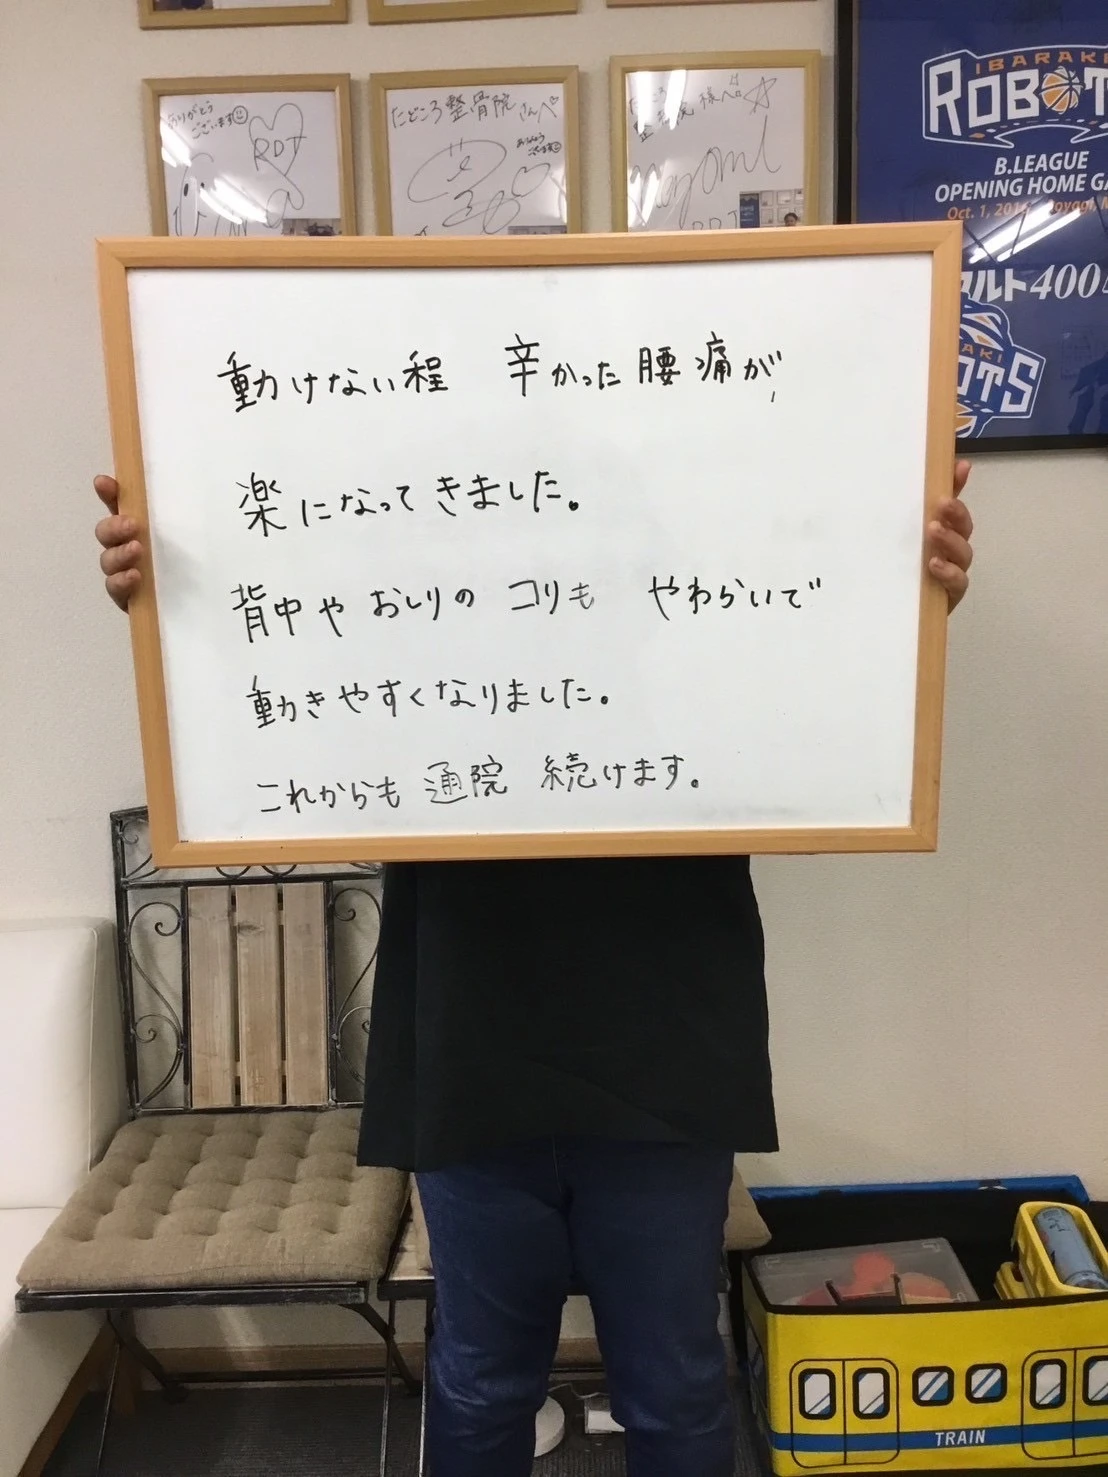 ありがとう
ございます
RDT
たどころ整骨院さんへ
ありがとう
ございます
様へ
RDT
IBARAKI
ROBOT
B.LEAGUE
OPENING HOME GA
Oct. 1, 201
ルト400
AKI
OTS
動けない程 辛かった腰痛が、
楽になってきました。
背中や おしりの コリも やわらいで
動きやすくなりました。
これからも 通院 続けます。
TRAIN